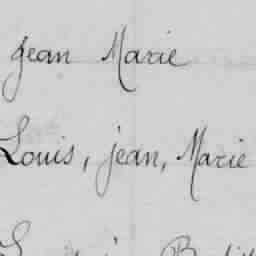 Jean Marie
Louis, jean, Marie